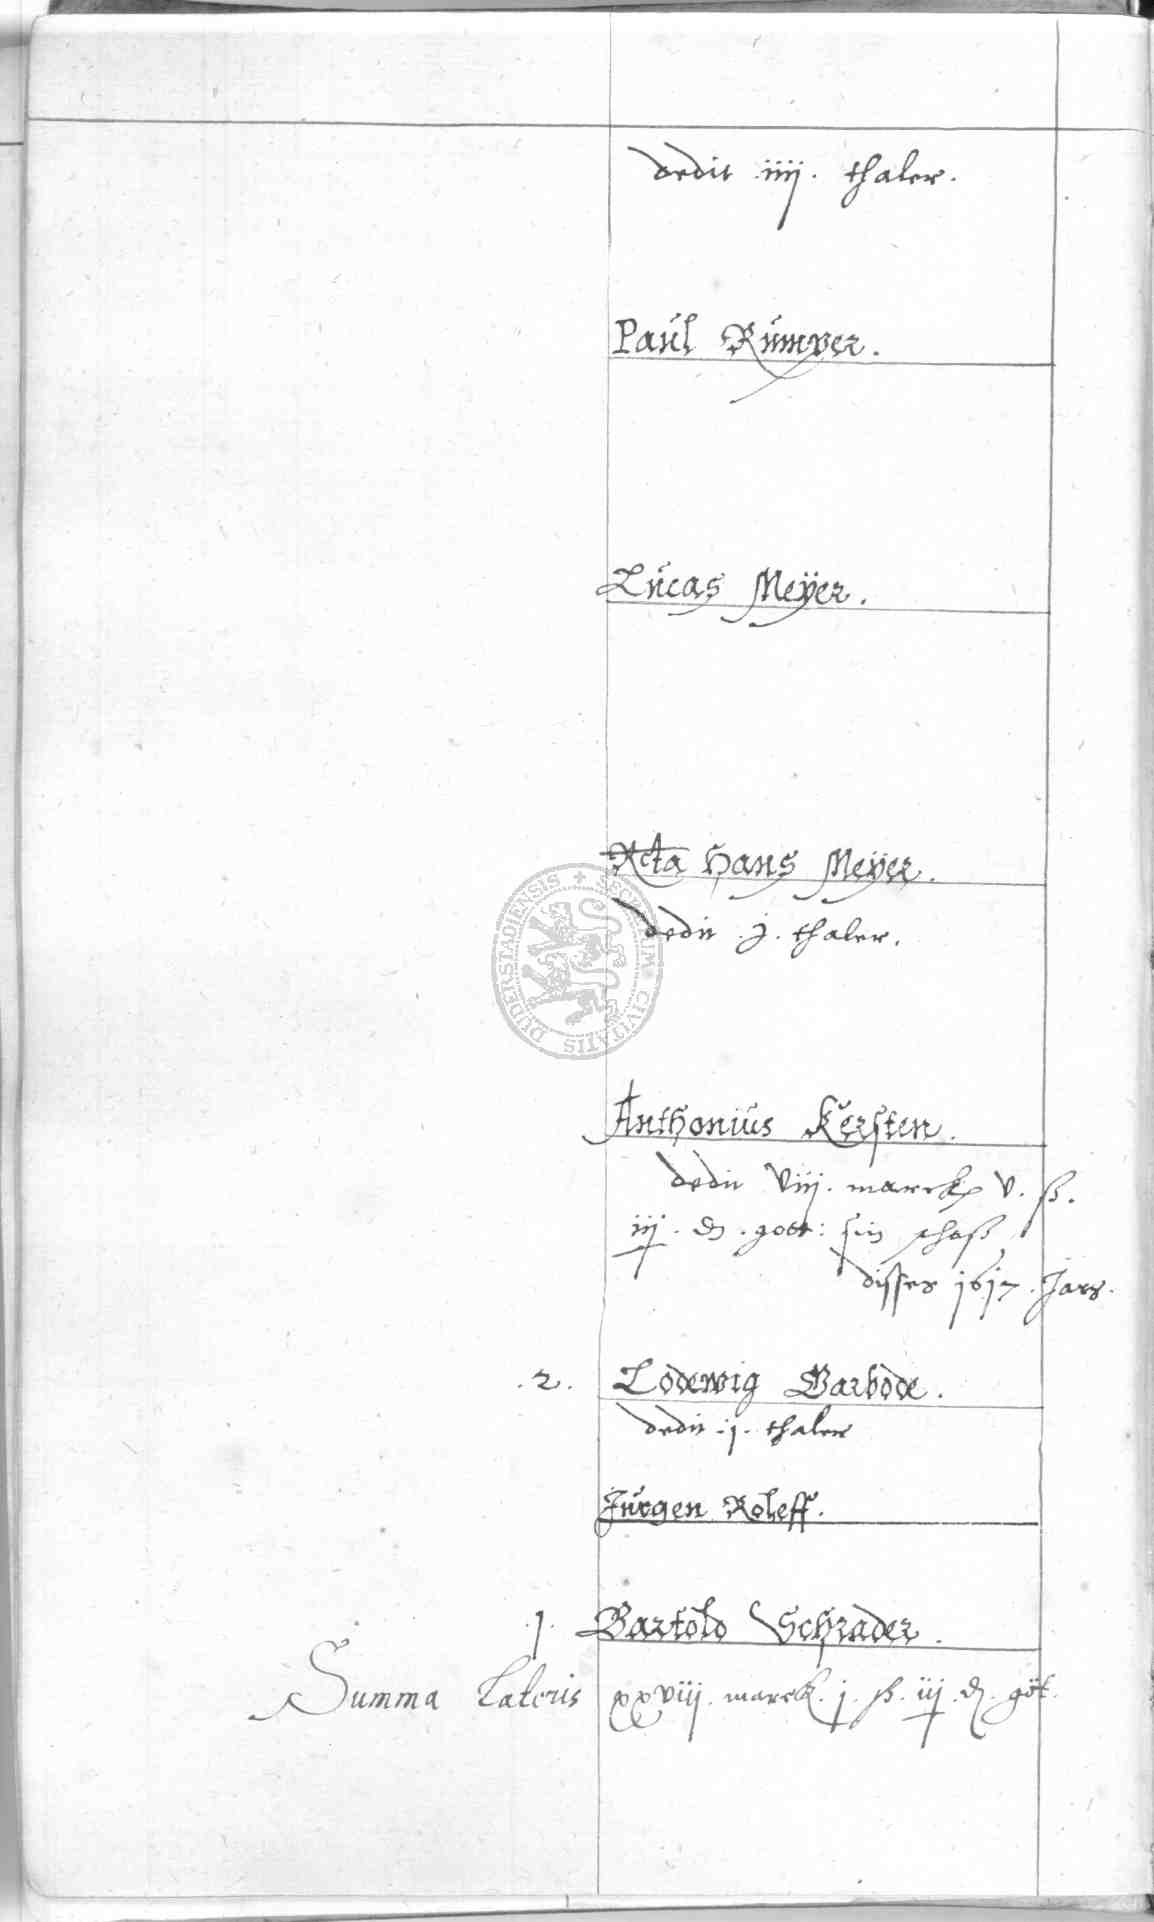 dedit .iiij. thaler.
Paül Rümper.
Lücas Meÿer.
Rcta Hans Meÿer.
dedit .j. thaler.
Anthoniüs Kersten.
dedit viij. marck v. ß.
iij. d. gott: sin schoß
disses 1617. Jars.
.2. Lodewig Barbode.
dedit .j. thaler
Jürgen Roleff.
.1. Bartold Schrader.
Summa Lateris xxviij. marck. j. ß. iij. d. göt.
SECRETUM CIVITATIS DUDERSTADIENSIS